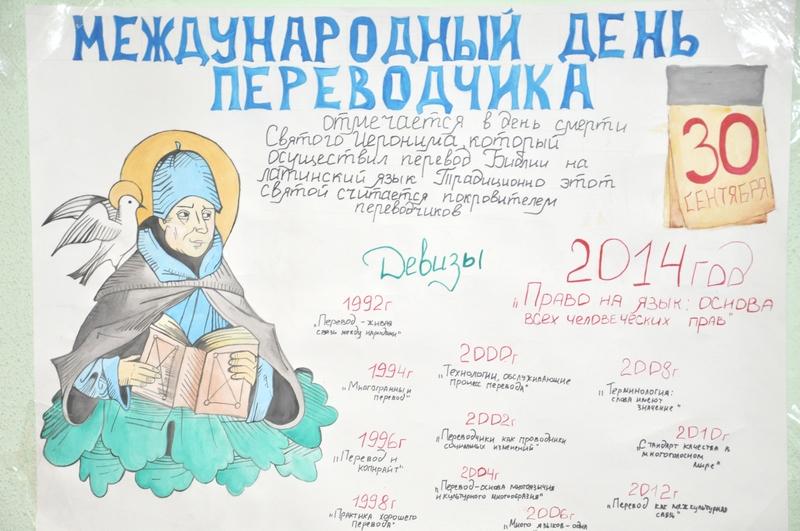 МЕЖДУНАРОДНЫЙ ДЕНЬ
ПЕРЕВОДЧИКА
отмечается в день смерти
Святого Иеронима, который
осуществил перевод Библии на
латинский язык. Традиционно этот
святой считается покровителем
переводчиков
30
СЕНТЯБРЯ
Девизы
2014 год
„Право на язык: основа
всех человеческих прав"
1992г
„Перевод - живая
связь между народами"
1994г
„Многогранный
перевод"
1996г
„Перевод и
копирайт"
1998г
„Практика хорошего
перевода"
2000г
„Технологии, обслуживающие
процесс перевода"
2002г
„Переводчики как проводники
социальных изменений"
2004г
„Перевод-основа многоязычия
и культурного многообразия"
2006г
„Много языков-одна
2008г
„Терминология:
слова имеют
значение"
2010г
„Стандарт качества в
многоголосном
мире"
2012г
„Перевод как межкультурная
связь"